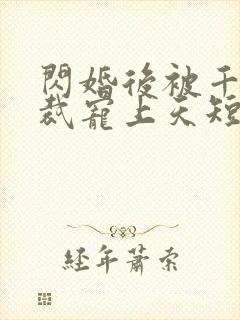 閃婚後被千
裁寵上天短
經年蕭索